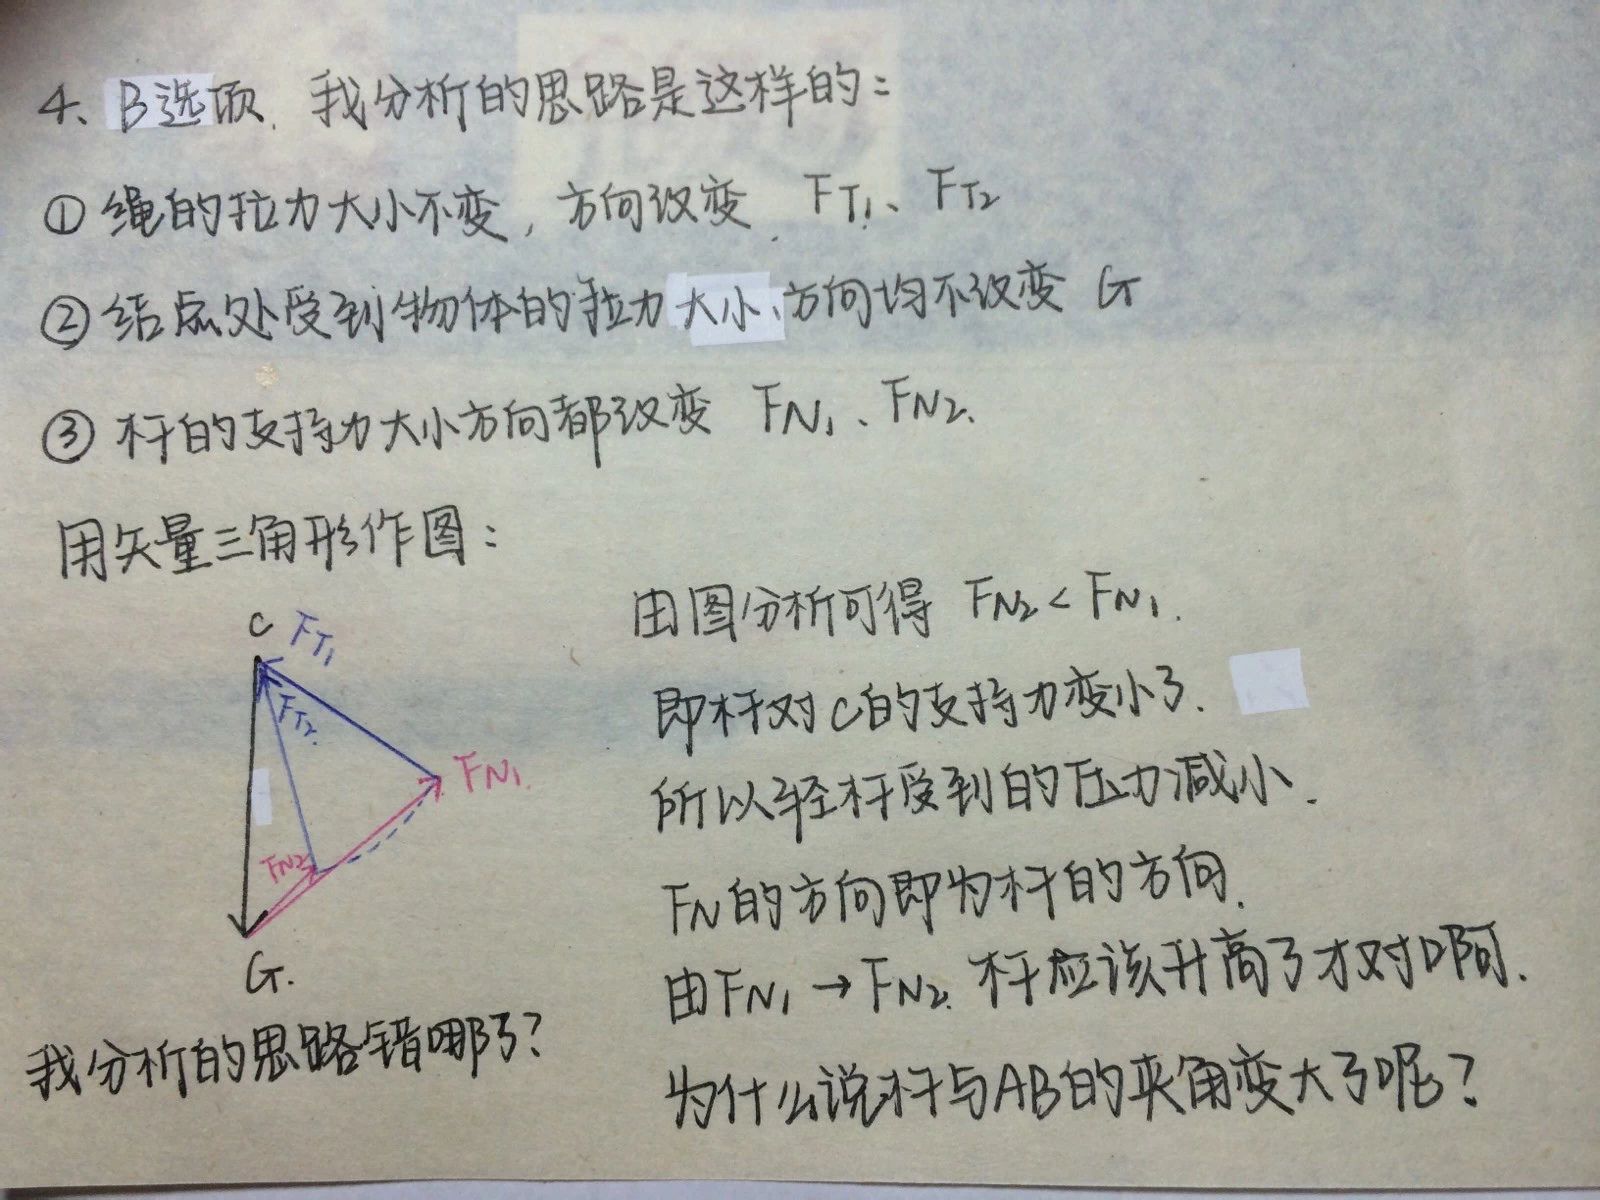 4、B选项. 我分析的思路是这样的：
① 绳的拉力大小不变，方向改变. FT1、FT2
② 结点处受到物体的拉力大小、方向均不改变 G
③ 杆的支持力大小方向都改变 FN1、FN2.
用矢量三角形作图：
C FT1
FT2.
FN1.
FN2
G.
我分析的思路错哪了？
由图分析可得 FN2 < FN1.
即杆对C的支持力变小了.
所以轻杆受到的压力减小.
FN的方向即为杆的方向.
由FN1 → FN2. 杆应该升高了才对啊.
为什么说杆与AB的夹角变大了呢？